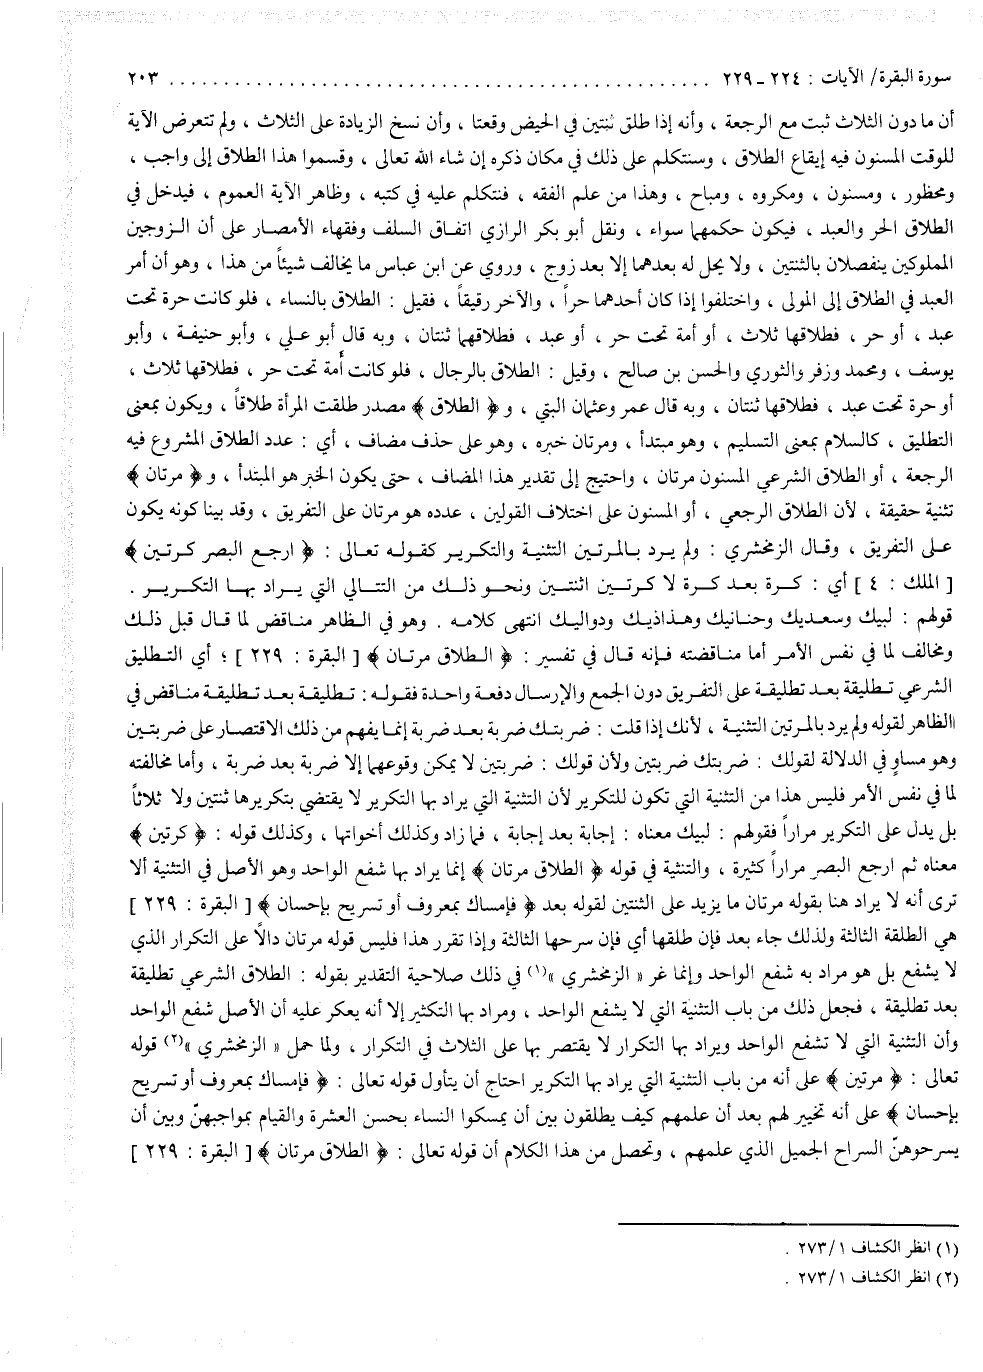 سورة البقرة/ الآيات : ٢٢٤ ـ ٢٢٩ ........................................................ ٢٠٣
أن ما دون الثلاث ثبت مع الرجعة ، وأنه إذا طلق ثنتين في الحيض وقعتا ، وأن نسخ الزيادة على الثلاث ، ولم تتعرض الآية
للوقت المسنون فيه إيقاع الطلاق ، وسنتكلم على ذلك في مكان ذكره إن شاء الله تعالى ، وقسموا هذا الطلاق إلى واجب ،
ومحظور ، ومسنون ، ومكروه ، ومباح ، وهذا من علم الفقه ، فنتكلم عليه في كتبه ، وظاهر الآية العموم ، فيدخل في
الطلاق الحر والعبد ، فيكون حكمهما سواء ، ونقل أبو بكر الرازي اتفاق السلف وفقهاء الأمصار على أن الزوجين
المملوكين ينفصلان بالثنتين ، ولا يحل له بعدهما إلا بعد زوج ، وروي عن ابن عباس ما يخالف شيئاً من هذا ، وهو أن أمر
العبد في الطلاق إلى المولى ، واختلفوا إذا كان أحدهما حراً ، والآخر رقيقاً ، فقيل : الطلاق بالنساء ، فلو كانت حرة تحت
عبد ، أو حر ، فطلاقها ثلاث ، أو أمة تحت حر ، أو عبد ، فطلاقهما ثنتان ، وبه قال أبو علي ، وأبو حنيفة ، وأبو
يوسف ، ومحمد وزفر والثوري والحسن بن صالح ، وقيل : الطلاق بالرجال ، فلو كانت أمة تحت حر ، فطلاقها ثلاث ،
أو حرة تحت عبد ، فطلاقها ثنتان ، وبه قال عمر وعثمان البتي ، و﴿ الطلاق ﴾ مصدر طلقت المرأة طلاقاً ، ويكون بمعنى
التطليق ، كالسلام بمعنى التسليم ، وهو مبتدأ ، ومرتان خبره ، وهو على حذف مضاف ، أي : عدد الطلاق المشروع فيه
الرجعة ، أو الطلاق الشرعي المسنون مرتان ، واحتيج إلى تقدير هذا المضاف ، حتى يكون الخبر هو المبتدأ ، و﴿ مرتان ﴾
تثنية حقيقة ، لأن الطلاق الرجعي ، أو المسنون على اختلاف القولين ، عدده هو مرتان على التفريق ، وقد بينا كونه يكون
على التفريق ، وقال الزمخشري : ولم يرد بالمرتين التثنية والتكرير كقوله تعالى : ﴿ ارجع البصر كرتين ﴾
[ الملك : ٤ ] أي : كرة بعد كرة لا كرتين اثنتين ونحو ذلك من التتالي التي يراد بها التكرير .
قولهم : لبيك وسعديك وحنانيك وهذاذيك ودواليك انتهى كلامه . وهو في الظاهر مناقض لما قال قبل ذلك
ومخالف لما في نفس الأمر أما مناقضته فإنه قال في تفسير : ﴿ الطلاق مرتان ﴾ [ البقرة : ٢٢٩ ] ؛ أي التطليق
الشرعي تطليقة بعد تطليقة على التفريق دون الجمع والإرسال دفعة واحدة فقوله : تطليقة بعد تطليقة مناقض في
الظاهر لقوله ولم يرد بالمرتين التثنية ، لأنك إذا قلت : ضربتك ضربة بعد ضربة إنما يفهم من ذلك الاقتصار على ضربتين
وهو مساوٍ في الدلالة لقولك : ضربتك ضربتين ولأن قولك : ضربتين لا يمكن وقوعهما إلا ضربة بعد ضربة ، وأما مخالفته
لما في نفس الأمر فليس هذا من التثنية التي تكون للتكرير لأن التثنية التي يراد بها التكرير لا يقتضي بتكريرها ثنتين ولا ثلاثاً
بل يدل على التكرير مراراً فقولهم : لبيك معناه : إجابة بعد إجابة ، فما زاد وكذلك أخواتها ، وكذلك قوله : ﴿ كرتين ﴾
معناه ثم ارجع البصر مراراً كثيرة ، والتثنية في قوله ﴿ الطلاق مرتان ﴾ إنما يراد بها شفع الواحد وهو الأصل في التثنية ألا
ترى أنه لا يراد هنا بقوله مرتان ما يزيد على الثنتين لقوله بعد ﴿ فإمساك بمعروف أو تسريح بإحسان ﴾ [ البقرة : ٢٢٩ ]
هي الطلقة الثالثة ولذلك جاء بعد فإن طلقها أي فإن سرحها الثالثة وإذا تقرر هذا فليس قوله مرتان دالاً على التكرار الذي
لا يشفع بل هو مراد به شفع الواحد وإنما غر « الزمخشري »(١) في ذلك صلاحية التقدير بقوله : الطلاق الشرعي تطليقة
بعد تطليقة ، فجعل ذلك من باب التثنية التي لا يشفع الواحد ، ومراد بها التكثير إلا أنه يعكر عليه أن الأصل شفع الواحد
وأن التثنية التي لا تشفع الواحد ويراد بها التكرار لا يقتصر بها على الثلاث في التكرار ، ولما حمل « الزمخشري »(٢) قوله
تعالى : ﴿ مرتين ﴾ على أنه من باب التثنية التي يراد بها التكرير احتاج أن يتأول قوله تعالى : ﴿ فإمساك بمعروف أو تسريح
بإحسان ﴾ على أنه تخيير لهم بعد أن علمهم كيف يطلقون بين أن يمسكوا النساء بحسن العشرة والقيام بمواجبهنّ وبين أن
يسرحوهنّ السراح الجميل الذي علمهم ، وتحصل من هذا الكلام أن قوله تعالى : ﴿ الطلاق مرتان ﴾ [ البقرة : ٢٢٩ ]
(١) انظر الكشاف ١/ ٢٧٣ .
(٢) انظر الكشاف ١/ ٢٧٣ .